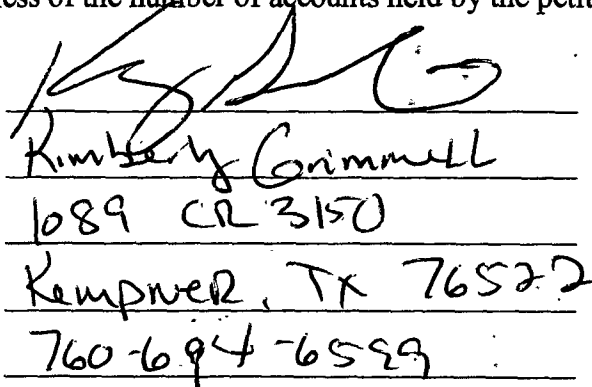 ess of the number of accounts held by the petit
Kimberly Grimmell
1089 CR 3150
Kempner, TX 76522
760-694-6599